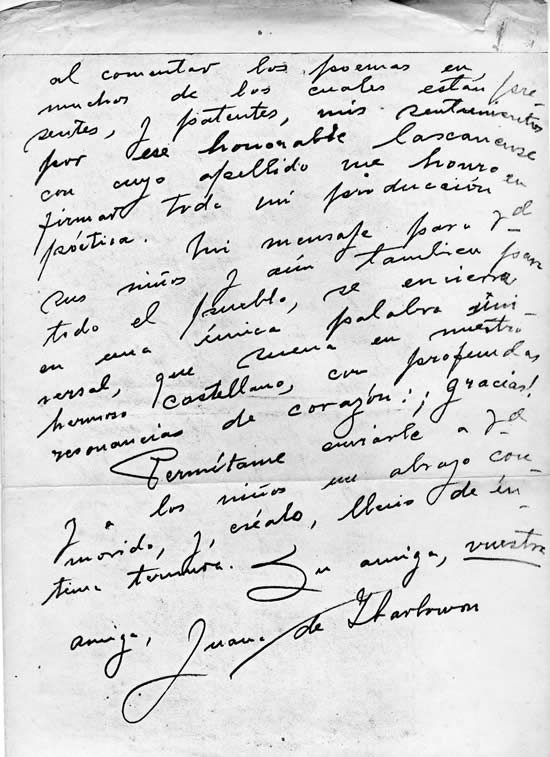 al comentar los poemas en
muchos de los cuales están pre-
sentes, y patentes, mis sentimientos
por ese honorable lascanense
con cuyo apellido me honro en
firmar toda mi producción
poética. Mi mensaje para Ud
sus niños y aún también para
todo el pueblo, se encierra
en una única palabra uni-
versal, que suena en nuestro
hermoso castellano, con profundas
resonancias de corazón: ¡gracias!
Permítame enviarle a Ud
y a los niños un abrazo con-
movido, y, créalo, lleno de ín-
tima ternura. Su amiga, vuestra
amiga, Juana de Ibarbourou